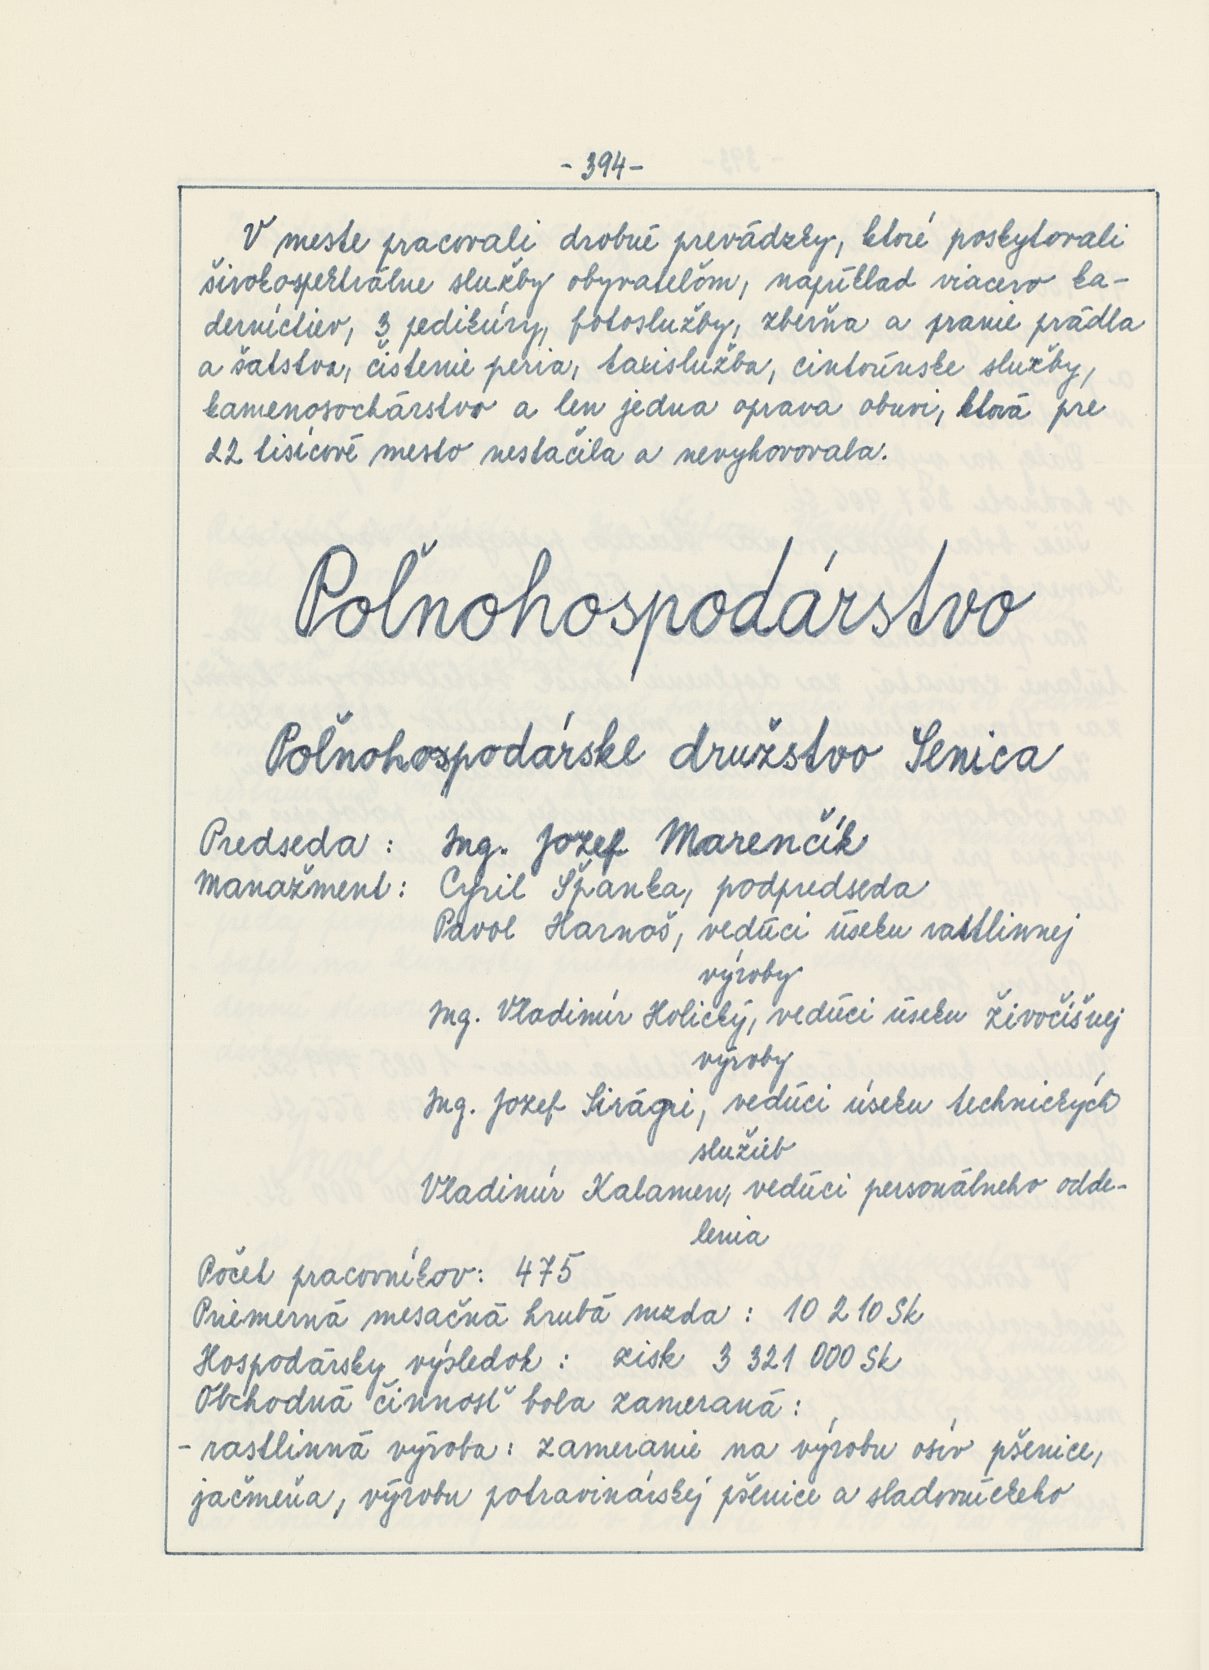 - 394 -
V meste pracovali drobné prevádzky, ktoré poskytovali
širokospektrálne služby obyvateľom, napríklad viacero ka-
derníctiev, 3 pedikúry, fotoslužby, zberňa a pranie prádla
a šatstva, čistenie peria, taxislužba, cintorínske služby,
kamenosochárstvo a len jedna oprava obuvi, ktorá pre
22 tisícové mesto nestačila a nevyhovovala.
Poľnohospodárstvo
Poľnohospodárske družstvo Senica
Predseda : Ing. Jozef Marenčík
Manažment : Cyril Špánka, podpredseda
Pavol Harnoš, vedúci úseku rastlinnej
výroby
Ing. Vladimír Holický, vedúci úseku živočíšnej
výroby
Ing. Jozef Sirági, vedúci úseku technických
služieb
Vladimír Kalamen, vedúci personálneho odde-
lenia
Počet pracovníkov : 475
Priemerná mesačná hrubá mzda : 10 210 Sk
Hospodársky výsledok : zisk 3 321 000 Sk
Obchodná činnosť bola zameraná :
- rastlinná výroba : zameranie na výrobu osív pšenice,
jačmeňa, výrobu potravinárskej pšenice a sladovníckeho